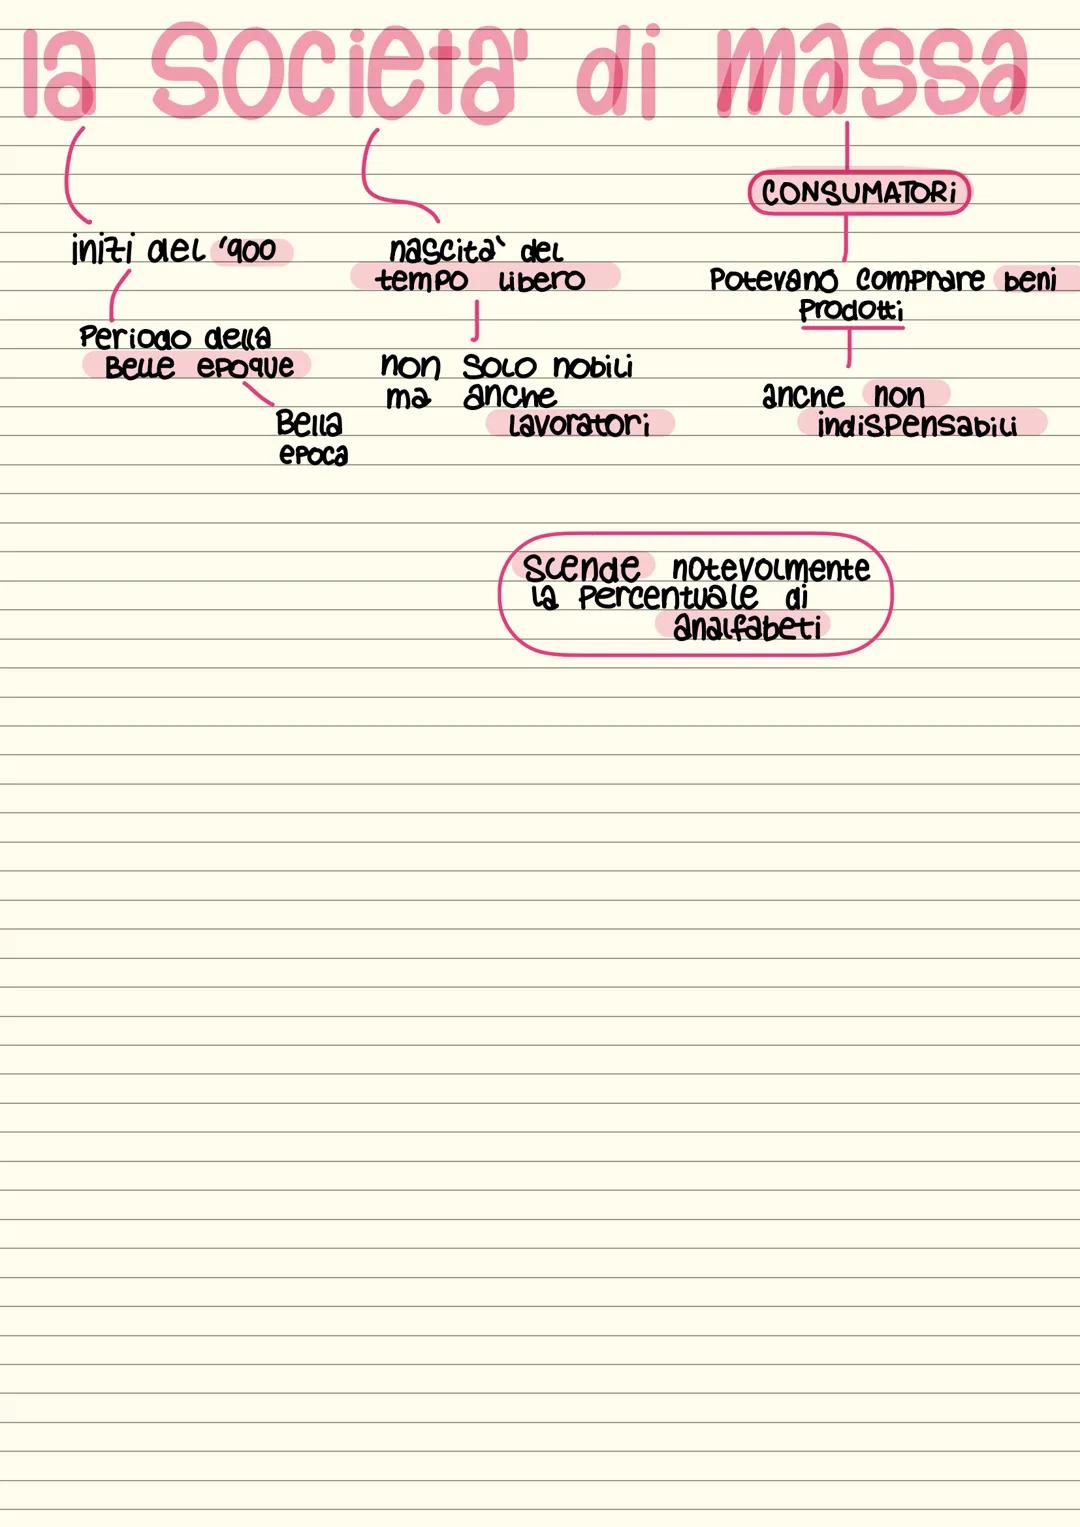 la società di massa
CONSUMATORi
inizi del '900
nascita' del
tempo libero
Potevano comprare beni
Prodotti
Periodo della
Belle epoque
non solo nobili
ma anche
lavoratori
anche non
indispensabili
Bella
epoca
Scende notevolmente
la percentuale di
analfabeti